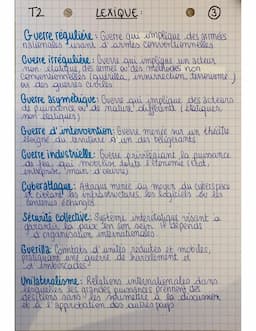 T2 LEXIQUE: 3
Guerre régulière: Guerre qui implique des armées
nationales usant d'armes conventionnelles
Guerre irrégulière: Guerre qui implique un acteur
non étatique, des armes ou des méthodes non
conventionnelles (guérilla, insurrection, terrorisme)
ou des guerres civiles
Guerre asymétrique: Guerre qui implique des acteurs
de puissance ou de nature différent (étatiques
non étatiques)
Guerre d'intervention: Guerre menée sur un théâtre
éloigné du territoire d'un des belligérants
Guerre industrielle: Guerre privilégiant la puissance
de feu, qui mobilise toute l'économie (État,
entreprise, main d'œuvre)
Cyberattaque: Attaque menée au moyen du cyberespace
et ciblant les infrastructures, les logiciels ou les
contenus échangés
Sécurité collective: Système interétatique visant à
garantir la paix en son sein. Il dépend
d'organisation internationales
Guérilla: Combats d'unités réduites et mobiles,
pratiquant une guerre de harcèlement et
d'embuscades
Unilatéralisme: Relations internationales dans
lesquelles les grandes puissances prennent des
décisions sans les soumettre à la discussion
et à l'approbation des autres pays